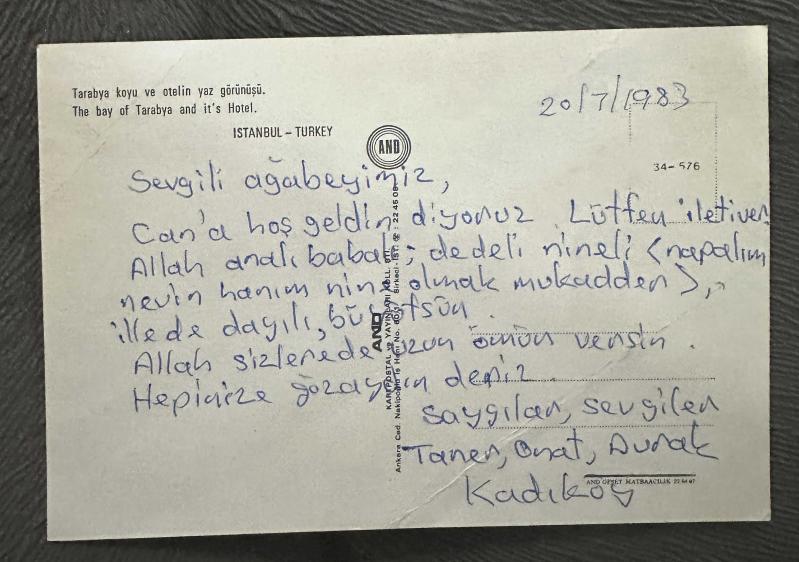 Tarabya koyu ve otelin yaz görünüşü.
The bay of Tarabya and it's Hotel.
ISTANBUL – TURKEY
20/7/1983
AND
34-576
Sevgili ağabeyimiz,
Can'a hoş geldin diyoruz. Lütfen iletiver
Allah analı babalı; dedeli nineli (napalım
nevin hanım nine olmak mukadder),
illede dayılı, büyütsün.
Allah sizlerede uzun ömür versin.
Hepinize gözaydın deriz.
Saygılar, sevgiler
Taner, Onat, Durak
Kadıköy
AND
KARTPOSTAL ve YAYINLARI KOLL. ŞTİ.
Ankara Cad. Nakipoğlu İş Hanı No. Sirkeci-İST. : 22 45 08
AND OFSET MATBAACILIK 22 64 07